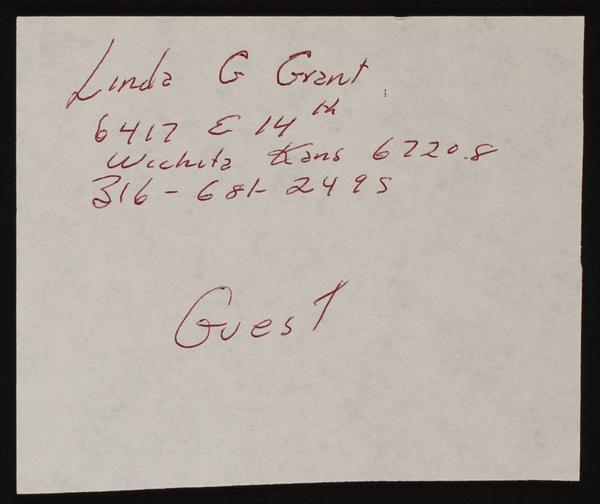 Linda G Grant
6417 E 14th
Wichita Kans 67208
316-681-2495
Guest